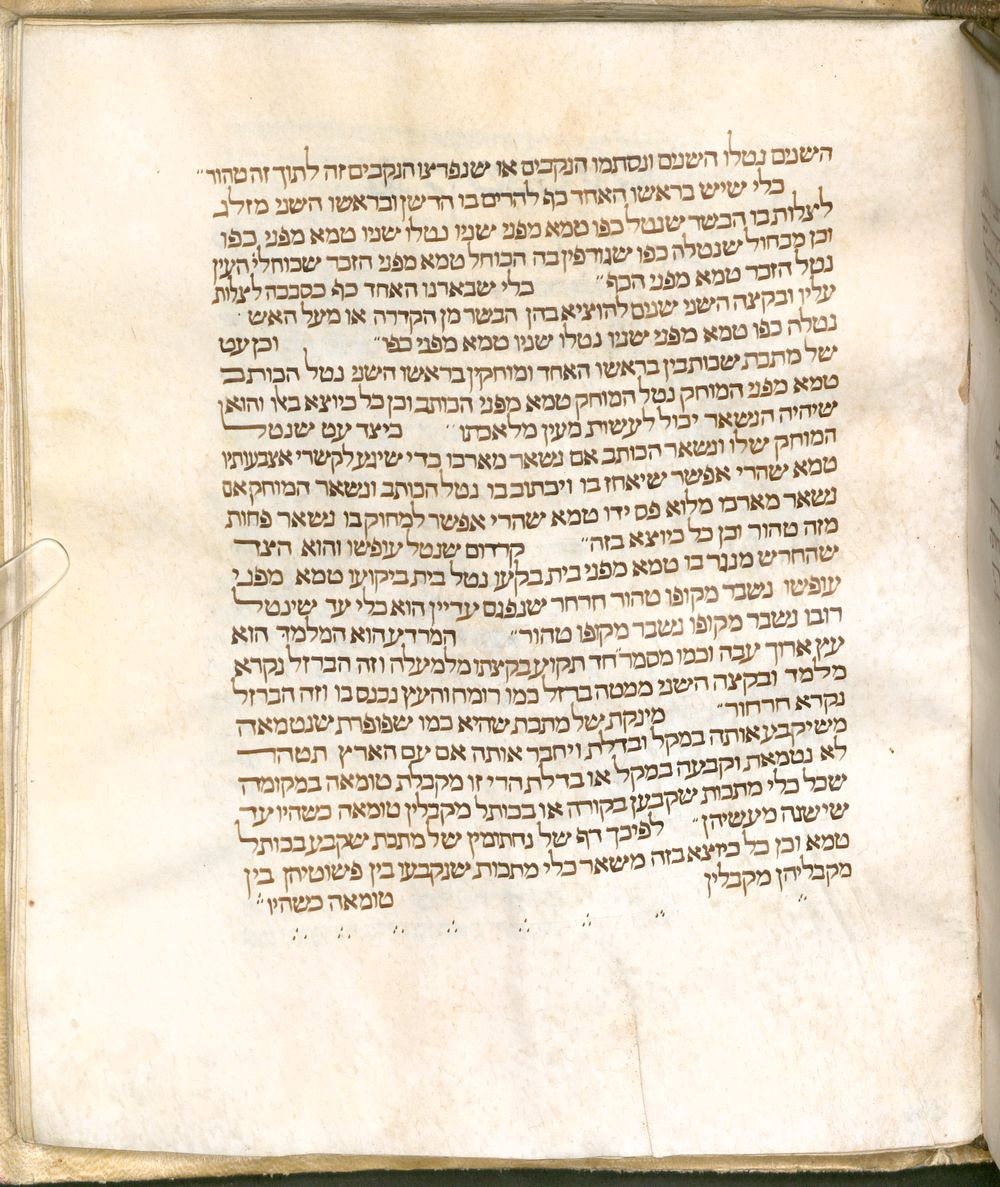 השנים נטלו השנים ונסתמו הנקבים או שנפרצו הנקבים זה לתוך זה טהור״
כלי שיש בראשו האחד כף להרים בו הדשן ובראשו השני מזלג
לצלות בו הבשר שנטל כפו טמא מפני שניו נטלו שניו טמא מפני כפו
וכן מכחול שנטלה כפו שגורפין בה הכוחל טמא מפני הזכר שכוחלין העין
נטל הזכר טמא מפני הכף״ כלי שבארנו האחד כף כסבכה לצלות
עליו ובקצה השני שנים להוציא בהן הבשר מן הקדרה או מעל האש
נטלה כפו טמא מפני שניו נטלו שניו טמא מפני כפו״ וכן עט
של מתכת שכותבין בראשו האחד ומוחקין בראשו השני נטל הכותב
טמא מפני המוחק נטל המוחק טמא מפני הכותב וכן כל כיוצא באו והוא
שיהיה הנשאר יכול לעשות מעין מלאכתו״ כיצד עט שנטל
המוחק שלו ונשאר הכותב אם נשאר מארכו כדי שיגע לקשרי אצבעותיו
טמא שהרי אפשר שיאחז בו ויכתוב בו נטל הכותב ונשאר המוחק אם
נשאר מארכו מלוא פס ידו טמא שהרי אפשר למחוק בו נשאר פחות
מזה טהור וכן כל כיוצא בזה״ קרדום שנטל עושפו והוא הצד
שהחרש מנגר בו טמא מפני בית בקעו נטל בית ביקועו טמא מפני
עושפו נשבר מקופו טהור חרחר שנפגם עדיין הוא כלי עד שינטל
רובו נשבר מקופו נשבר מקופו טהור״ המרדע הוא המלמד הוא
עץ ארוך עבה וכמו מסמר חד תקוע בקצתו מלמעלה וזה הברזל נקרא
מלמד ובקצה השני ממטה ברזל כמו רומח והעץ נכנס בו וזה הברזל
נקרא חרחור״ מינקת של מתכת שהיא כמו שפופרת שנטמאה
משיקבע אותה במקל ובדלת ויחבר אותה אם עם הארץ תטהר
לא נטמאת וקבעה במקל או בדלת הרי זו מקבלת טומאה במקומה
שכל כלי מתכות שקבען בקורה או בכותל מקבלין טומאה כשהיו עד
שישנה מעשיהן״ לפיכך דף של נחתומין של מתכת שקבע בכותל
טמא וכן כל כיוצא בזה משאר כלי מתכות שנקבעו בין פשוטיהן בין
מקבליהן מקבלין
טומאה כשהיו״